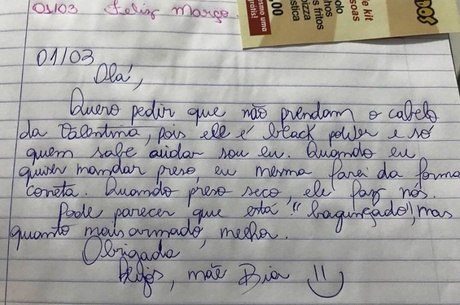 01/03 Feliz Março.
01/03
Olá,
Quero pedir que não prendam o cabelo
da Valentina, pois ele é black power e só
quem sabe cuidar sou eu. Quando eu
quiser mandar preso, eu mesma farei da forma
correta. Quando preso seco, ele faz nós.
Pode parecer que está "bagunçado", mas
quanto mais armado, melhor.
Obrigada
Beijos, mãe Bia
kit
soas
olo
nhos
s fritos
izza
ástica
,00
esmo uma